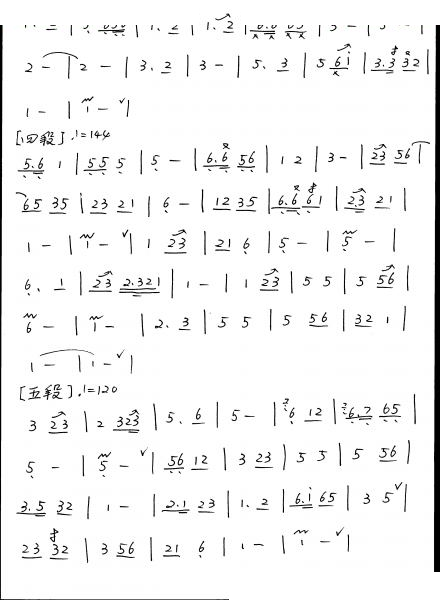 2 - | 2 - | 3. 2 | 3 - | 5. 3 | 5 6i | 3.3 32 |
1 - | 1 - ˅|
[四段] ♩=144
5.6 1 | 55 5 | 5 - | 6.6 56 | 1 2 | 3 - | 23 56 |
65 35 | 23 21 | 6 - | 12 35 | 6.6 61 | 2.3 21 |
1 - | 1 - ˅| 1 23 | 21 6 | 5 - | 5 - |
6. 1 | 23 2.321 | 1 - | 1 23 | 5 5 | 5 56 |
6 - | 1 - | 2. 3 | 5 5 | 5 56 | 32 1 |
1 - | 1 - ˅|
[五段] ♩=120
3 23 | 2 323 | 5. 6 | 5 - | 6 12 | 6.7 65 |
5 - | 5 - ˅| 56 12 | 3 23 | 5 5 | 5 56 |
3.5 32 | 1 - | 2.1 23 | 1. 2 | 6.i 65 | 3 5 ˅|
23 32 | 3 56 | 21 6 | 1 - | 1 - ˅|